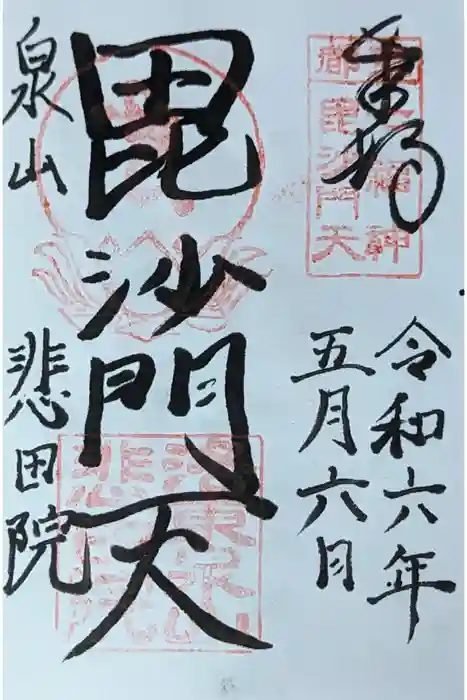 奉拝
令和六年
五月六日
毘沙門天
泉山
悲田院
都七福神
毘沙門天